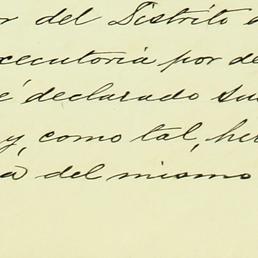 r del Distrito d
xecutoria por de
é declarado su
y, como tal, her
a del mismo